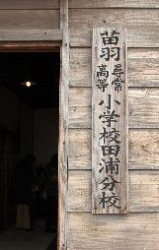 苗羽尋常高等小学校田浦分校